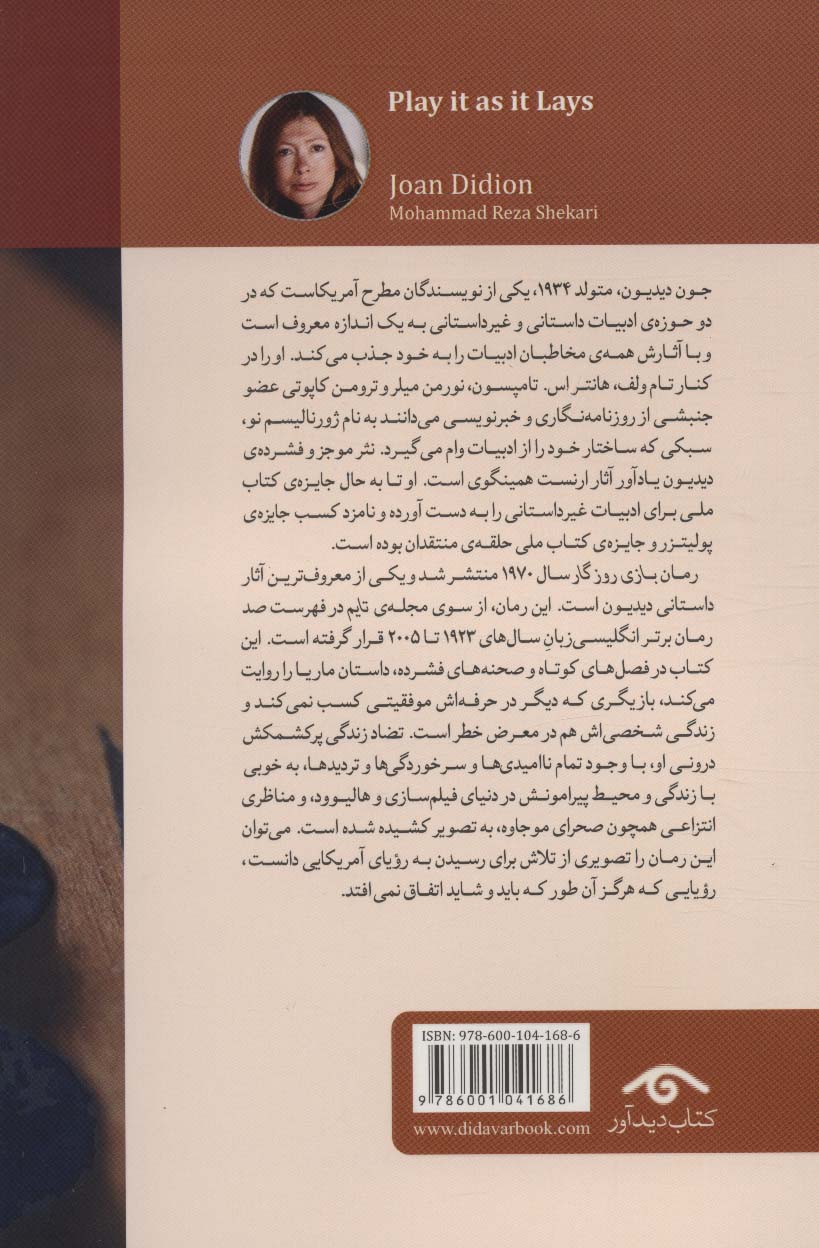 Play it as it Lays
Joan Didion
Mohammad Reza Shekari
جـون دیدیـون، متولد ۱۹۳۴، یکی از نویسـندگان مطرح آمریکاست که در
دو حـوزه‌ی ادبیـات داستـانی و غیرداستـانی بـه یـک انـدازه معروف اسـت
و بـا آثـارش همـه‌ی مخاطبـان ادبیـات را بـه خـود جذب می‌کنـد. او را در
کنـار تـام ولف، هانتـر اس. تامپسـون، نورمن میلر و ترومـن کاپوتی عضو
جنبشی از روزنامه‌نـگاری و خبرنویسـی می‌داننـد به نام ژورنالیسم نو،
سـبکی کـه ساختـار خـود را از ادبیـات وام می‌گیـرد. نثر موجز و فشرده‌ی
دیدیـون یـادآور آثار ارنسـت همینگوی اسـت. او تـا بـه حـال جایزه‌ی کتاب
ملـی بـرای ادبیـات غیرداستـانی را به دسـت آورده و نامزد کسب جایزه‌ی
پولیتـزر و جایزه‌ی کتـاب ملی حلقه‌ی منتقدان بوده است.
رمـان بـازی روزگار سـال ۱۹۷۰ منتشـر شـد و یکـی از معروف‌تریـن آثار
داستـانی دیدیـون اسـت. ایـن رمـان، از سـوی مجلـه‌ی تایم در فهرسـت صد
رمـان برتـر انگلیسـی‌زبان سـال‌های ۱۹۲۳ تـا ۲۰۰۵ قـرار گرفته اسـت. این
کتـاب در فصل‌هـای کوتـاه و صحنه‌هـای فشـرده، داستـان ماریـا را روایت
می‌کنـد، بازیگری که دیگر در حرفه‌اش موفقیتـی کسب نمی‌کنـد و
زندگـی شـخصی‌اش هـم در معـرض خطر اسـت. تضـاد زندگی پرکشـمکش
درونـی او، بـا وجـود تمـام ناامیدی‌هـا و سـرخوردگی‌ها و تردیدهـا، به خوبی
بـا زندگـی و محیـط پیرامونـش در دنیای فیلم‌سازی و هالیوود، و مناظری
انتزاعـی همچـون صحرای موجـاوه، به تصویر کشیده شده است. می‌توان
ایـن رمـان را تصویـری از تـلاش بـرای رسیـدن بـه رؤیـای آمریکایی دانسـت،
رؤیایـی کـه هرگـز آن طور کـه بایـد و شـاید اتفاق نمی‌افتد.
ISBN: 978-600-104-168-6
9 786001 041686
www.didavarbook.com
کتاب دیدآور